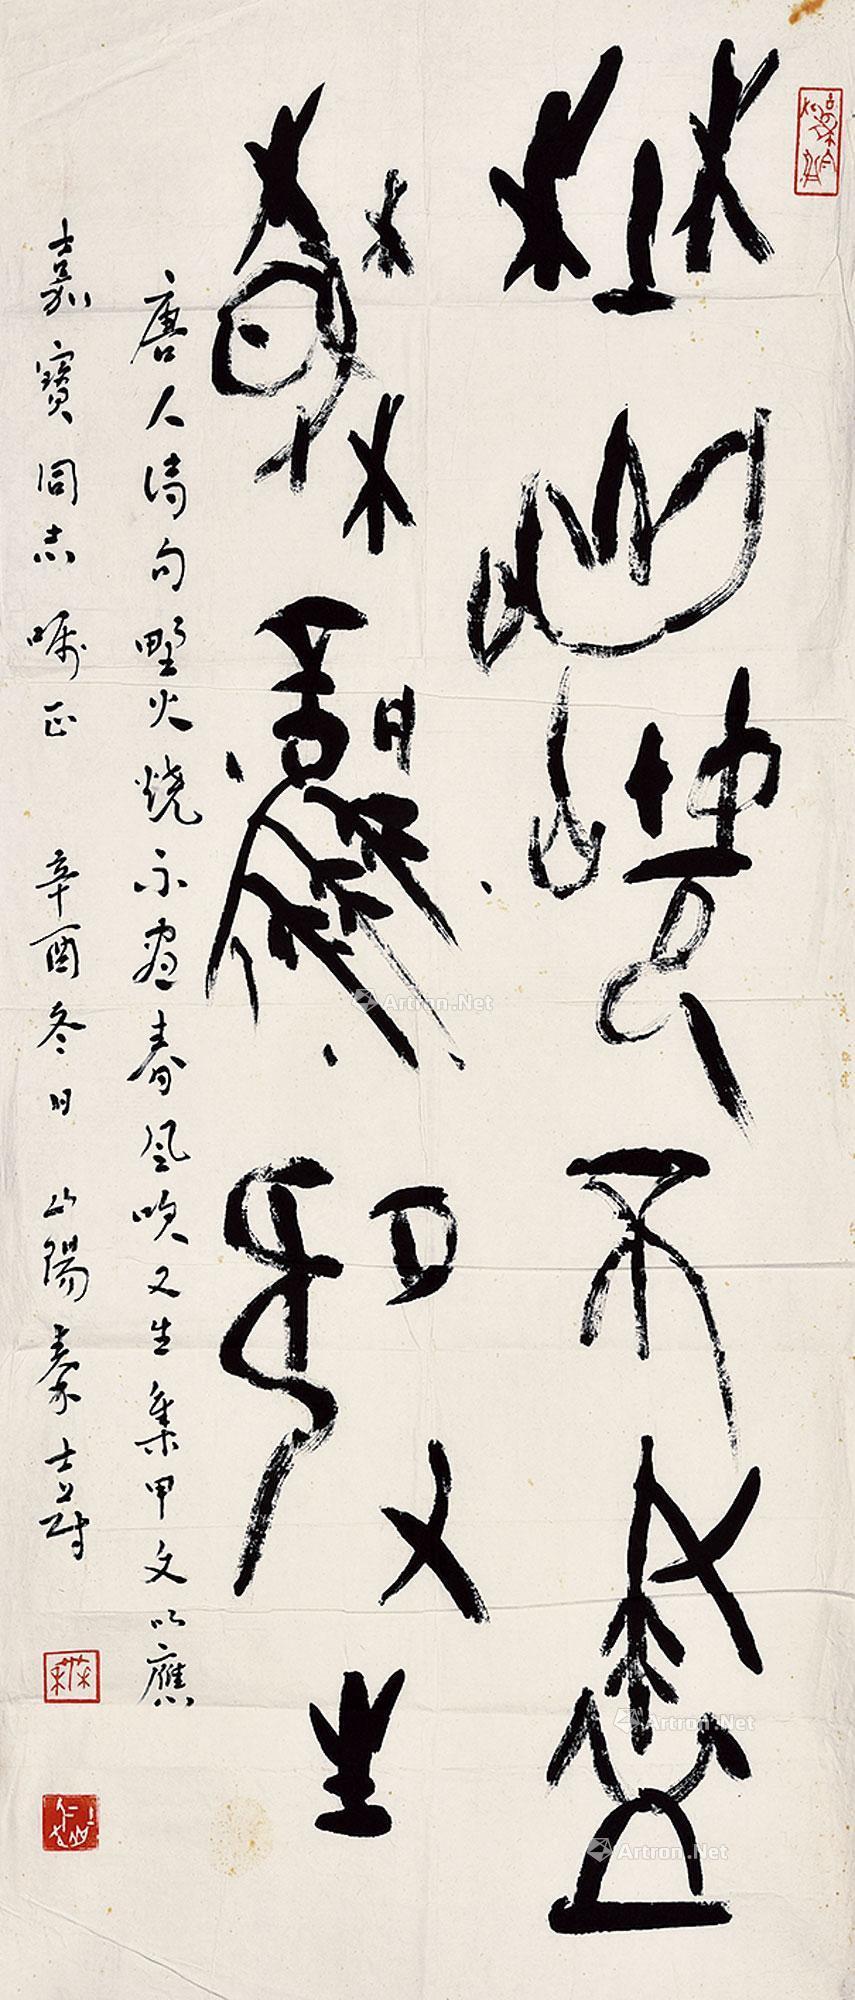 埜火燒不盡
春風吹又生
唐人诗句野火烧不尽春风吹又生集甲文以應
嘉寶同志嘱正 辛酉冬日 山陽秦士蔚
Artron.Net
Artron.Net
Artron.Net